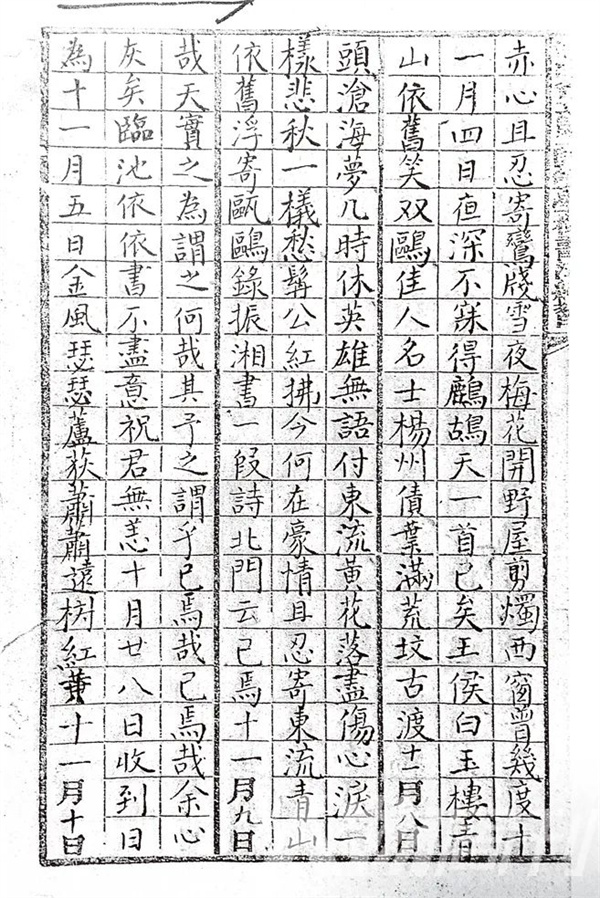 赤心且忍寄鸞牋雪夜梅花開野屋剪燭西窗曾幾度十
一月四日夜深不寐得鷓鴣天一首已矣王侯白玉樓青
山依舊笑双鷗佳人名士楊州債葉滿荒坟古渡十一月八日
頭滄海夢几時休英雄無語付東流黃花落盡傷心淚一
樣悲秋一樣愁髯公紅拂今何在豪情且忍寄東流青山
依舊浮寄甌鷗錄振湘書一段詩北門云已焉十一月九日
哉天實之為謂之何哉其予之謂乎已焉哉已焉哉余心
灰矣臨池依依書不盡意祝君無恙十月廿八日收到目
為十一月五日金風瑟瑟蘆荻蕭蕭遠樹紅黃十一月十日